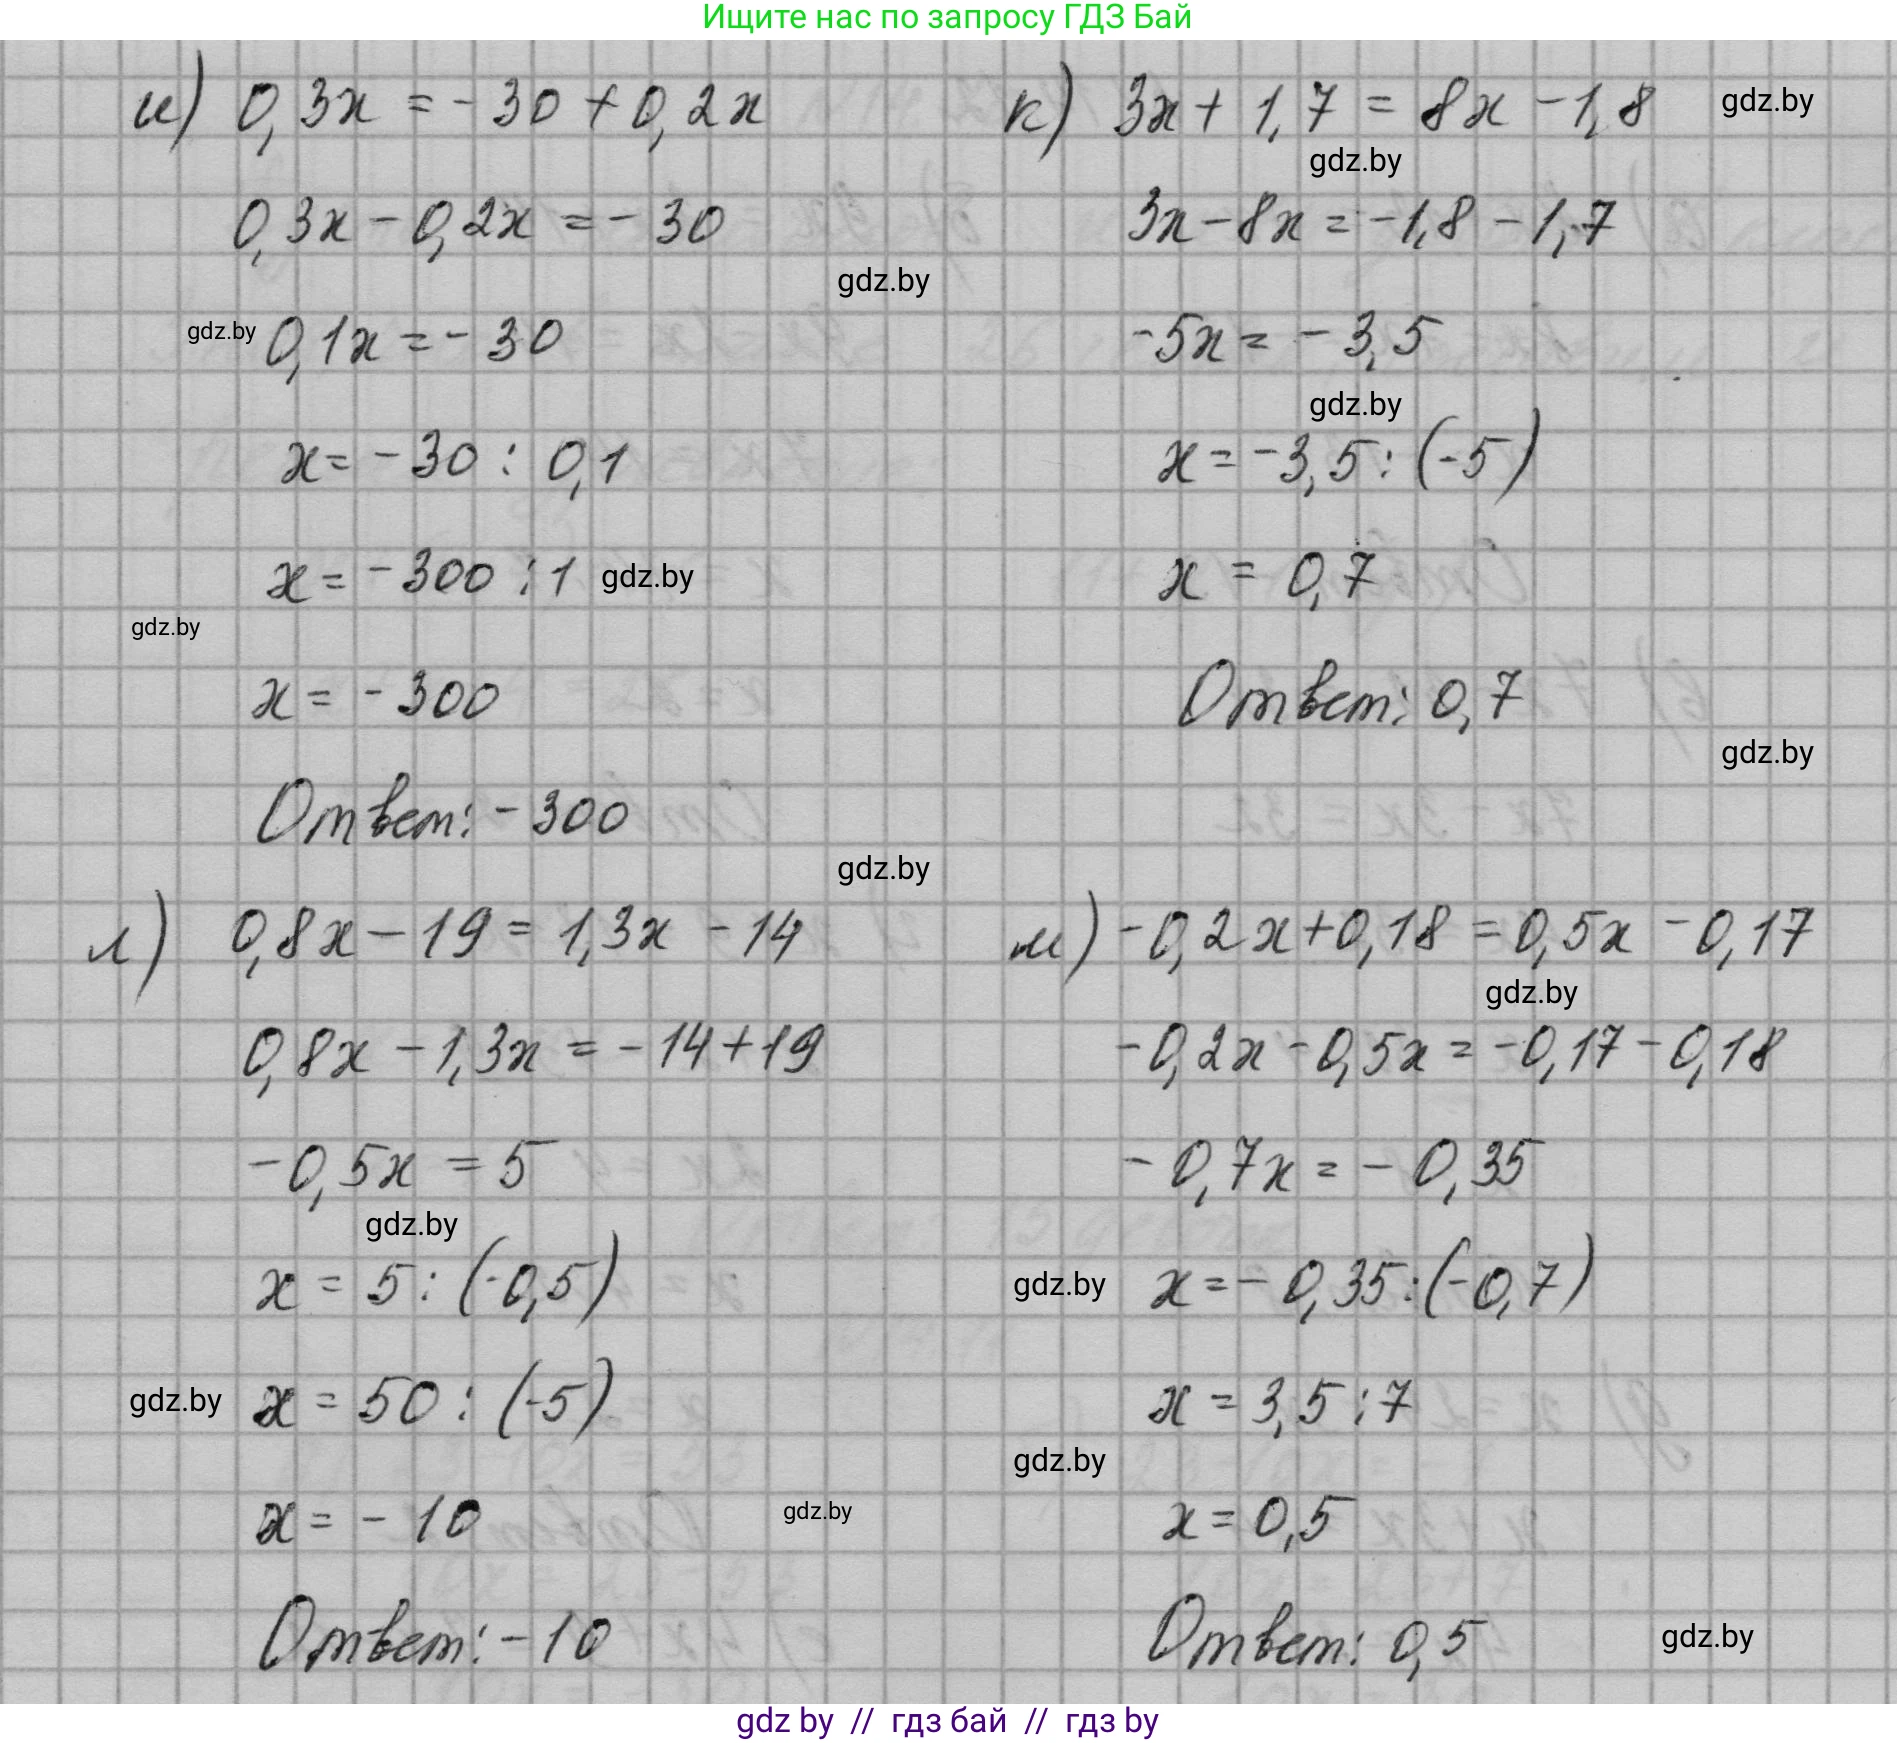 Ищите нас по запросу ГДЗ Бай
и) 0,3x = -30 + 0,2x
0,3x - 0,2x = -30
gdz.by
gdz.by 0,1x = -30
x = -30 : 0,1
x = -300 : 1 gdz.by
gdz.by
x = -300
Ответ: -300
к) 3x + 1,7 = 8x - 1,8 gdz.by
gdz.by
3x - 8x = -1,8 - 1,7
-5x = -3,5
gdz.by
x = -3,5 : (-5)
x = 0,7
Ответ: 0,7
gdz.by
gdz.by
л) 0,8x - 19 = 1,3x - 14
0,8x - 1,3x = -14 + 19
-0,5x = 5
gdz.by
x = 5 : (-0,5)
gdz.by x = 50 : (-5)
x = -10
gdz.by
Ответ: -10
м) -0,2x + 0,18 = 0,5x - 0,17
gdz.by
-0,2x - 0,5x = -0,17 - 0,18
-0,7x = -0,35
gdz.by x = -0,35 : (-0,7)
x = 3,5 : 7
gdz.by
x = 0,5
Ответ: 0,5 gdz.by
gdz by // гдз бай // гдз by